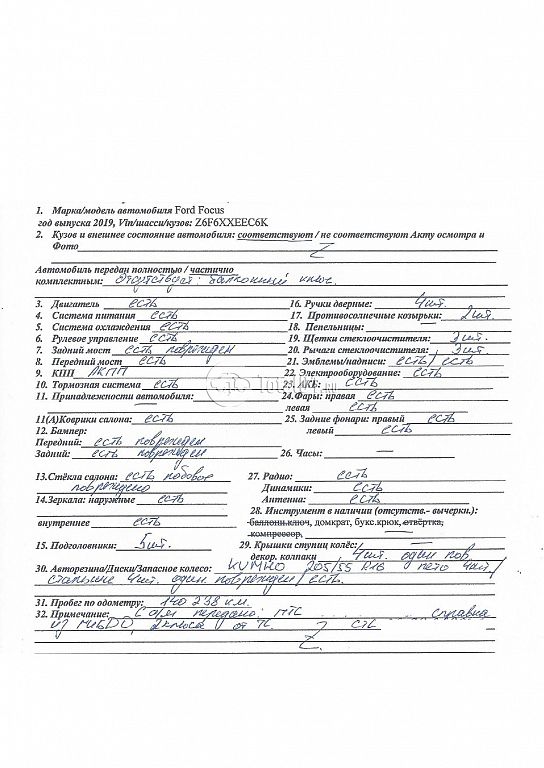 1. Марка/модель автомобиля Ford Focus
год выпуска 2019, Vin/шасси/кузов: Z6F6XXEEC6K
2. Кузов и внешнее состояние автомобиля: соответствуют / не соответствуют Акту осмотра и
Фото Z
Автомобиль передан полностью / частично
комплектным: отсутствует: балконный ключ
3. Двигатель есть
4. Система питания есть
5. Система охлаждения есть
6. Рулевое управление есть
7. Задний мост есть поврежден
8. Передний мост есть
9. КПП АКПП
10. Тормозная система есть
11. Принадлежности автомобиля:
11(А)Коврики салона: есть
12. Бампер:
Передний: есть поврежден
Задний: есть поврежден
13.Стёкла салона: есть лобовое
повреждено
14.Зеркала: наружные есть
внутреннее есть
15. Подголовники: 5шт.
16. Ручки дверные: 4шт.
17. Противосолнечные козырьки: 2шт.
18. Пепельницы: —
19. Щетки стеклоочистителя: 3шт.
20. Рычаги стеклоочистителя: 3шт.
21. Эмблемы/надписи: есть/есть
22. Электрооборудование: есть
23. АКБ: есть
24.Фары: правая есть
левая есть
25. Задние фонари: правый есть
левый есть
26. Часы: —
27. Радио: есть
Динамики: есть
Антенна: есть
28. Инструмент в наличии (отсутств.- вычеркн.):
баллонн.ключ, домкрат, букс.крюк, отвёртка,
компрессор,
29. Крышки ступиц колёс: —
декор. колпаки 4шт. один пов.
30. Авторезина/Диски/Запасное колесо: KUMHO 205/55 R16 лето 4шт/
стальные 4шт. один поврежден/есть.
31. Пробег по одометру: 140 238 км.
32. Примечание: С а/м передано: ПТС справка
из МБДО, 2ключа от ТС. Z СТС
Z